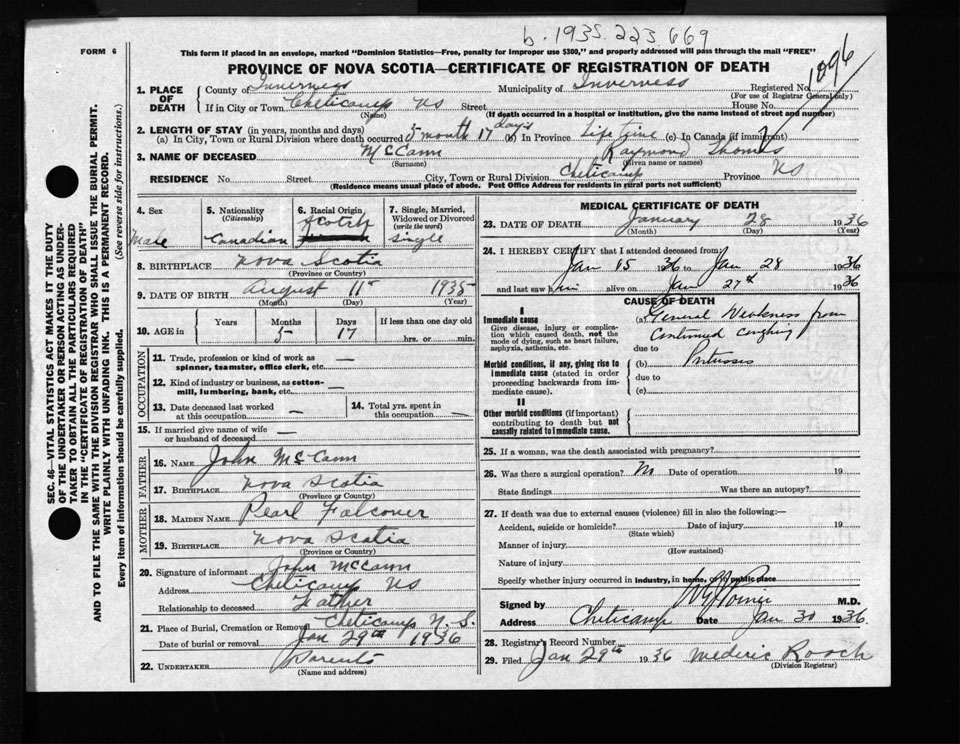 b. 1935. 223 669
FORM 6
This form if placed in an envelope, marked "Dominion Statistics—Free, penalty for improper use $300," and properly addressed will pass through the mail "FREE"
PROVINCE OF NOVA SCOTIA—CERTIFICATE OF REGISTRATION OF DEATH
1. PLACE OF DEATH
County of Inverness Municipality of Inverness Registered No. 1096
(For use of Registrar General only)
If in City or Town Cheticamp NS Street House No.
(Name) (If death occurred in a hospital or institution, give the name instead of street and number)
2. LENGTH OF STAY (in years, months and days)
(a) In City, Town or Rural Division where death occurred 5 month 17 days (b) In Province Life time (c) In Canada (if immigrant)
3. NAME OF DECEASED McCann Raymond Thomas
(Surname) (Given name or names)
RESIDENCE No. Street City, Town or Rural Division Cheticamp Province NS
(Residence means usual place of abode. Post Office Address for residents in rural parts not sufficient)
4. Sex Male
5. Nationality (Citizenship) Canadian
6. Racial Origin Scotch
7. Single, Married, Widowed or Divorced (write the word) Single
8. BIRTHPLACE Nova Scotia
(Province or Country)
9. DATE OF BIRTH August 11th 1935
(Month) (Day) (Year)
10. AGE in Years Months Days If less than one day old
5 17 hrs. or min.
OCCUPATION
11. Trade, profession or kind of work as spinner, teamster, office clerk, etc. —
12. Kind of industry or business, as cotton-mill, lumbering, bank, etc. —
13. Date deceased last worked at this occupation —
14. Total yrs. spent in this occupation —
15. If married give name of wife or husband of deceased —
FATHER
16. NAME John McCann
17. BIRTHPLACE Nova Scotia
(Province or Country)
MOTHER
18. MAIDEN NAME Pearl Falconer
19. BIRTHPLACE Nova Scotia
(Province or Country)
20. Signature of informant John McCann
Address Cheticamp NS
Relationship to deceased Father
21. Place of Burial, Cremation or Removal Cheticamp N.S.
Date of burial or removal Jan 29th 1936
22. UNDERTAKER Parents
(Name and address)
MEDICAL CERTIFICATE OF DEATH
23. DATE OF DEATH January 28 1936
(Month) (Day) (Year)
24. I HEREBY CERTIFY that I attended deceased from:
Jan 15 1936 to Jan 28 1936
and last saw him alive on Jan 27th 1936
CAUSE OF DEATH
I
Immediate cause
Give disease, injury or complication which caused death, not the mode of dying, such as heart failure, asphyxia, asthenia, etc.
(a) General Weakness from
Continued coughing
due to
Morbid conditions, if any, giving rise to immediate cause (stated in order proceeding backwards from immediate cause).
(b) Pertussis
due to
(c)
II
Other morbid conditions (if important) contributing to death but not causally related to immediate cause.
25. If a woman, was the death associated with pregnancy?
26. Was there a surgical operation? No Date of operation 19
State findings Was there an autopsy?
27. If death was due to external causes (violence) fill in also the following:—
Accident, suicide or homicide? Date of injury 19
(State which)
Manner of injury
(How sustained)
Nature of injury
Specify whether injury occurred in industry, in home, or in public place
Signed by M.D.
Address Cheticamp Date Jan 30 1936
28. Registrar's Record Number
29. Filed Jan 29th 1936 Mederic Roach
(Division Registrar)
SEC. 46—VITAL STATISTICS ACT MAKES IT THE DUTY
OF THE UNDERTAKER OR PERSON ACTING AS UNDER-
TAKER TO OBTAIN ALL THE PARTICULARS REQUIRED
IN THE "CERTIFICATE OF REGISTRATION OF DEATH"
AND TO FILE THE SAME WITH THE DIVISION REGISTRAR WHO SHALL ISSUE THE BURIAL PERMIT.
WRITE PLAINLY WITH UNFADING INK. THIS IS A PERMANENT RECORD.
Every item of information should be carefully supplied. (See reverse side for instructions.)